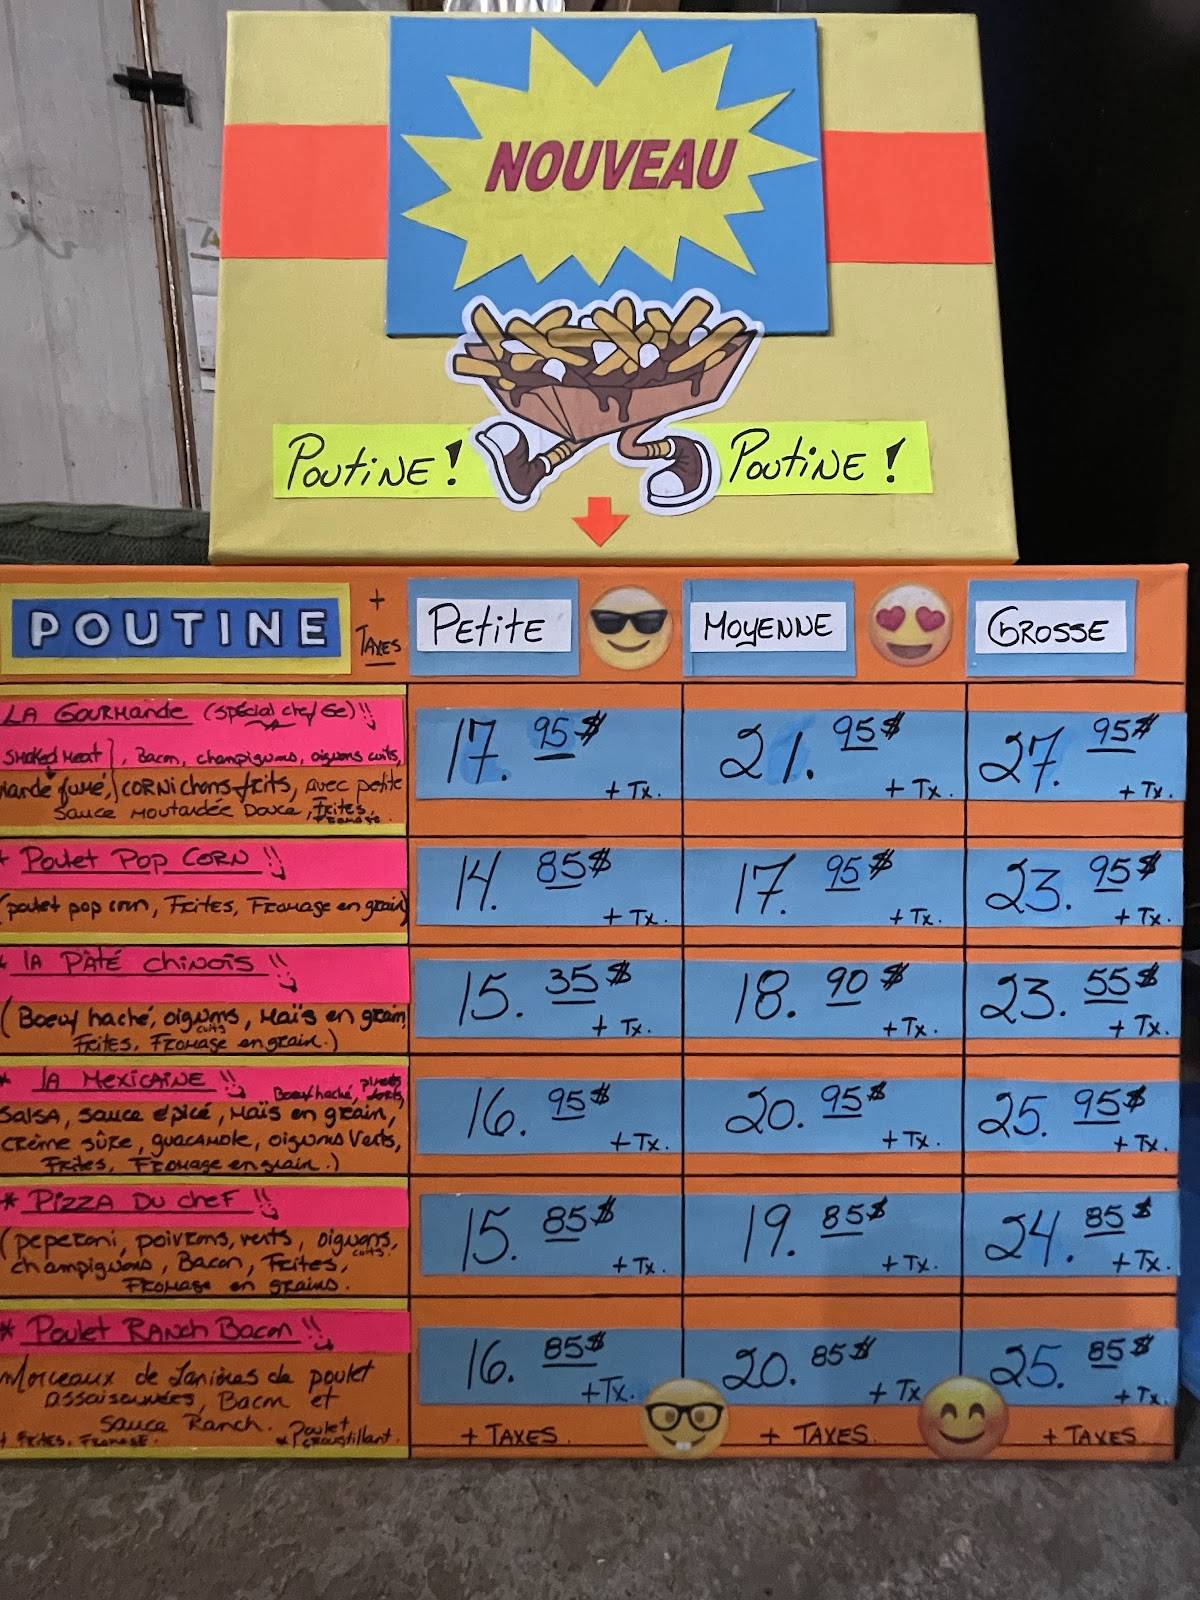 NOUVEAU
Poutine! Poutine!
POUTINE + TAXES Petite MOYENNE GROSSE
LA Gourmande (spécial chef Ge)!!
Smoked Meat), Bacon, champignons, oignons cuits,
iande fumé,) CORNichons frits, avec petite
Sauce Moutardée Douce, Frites,
Fromage.
17.95$ + Tx. 21.95$ + Tx. 27.95$ + Tx.
Poulet Pop CORN!!
(poulet pop corn, Frites, Fromage en grain)
14.85$ + Tx. 17.95$ + Tx. 23.95$ + Tx.
* lA PÂTÉ chinois!!
(Boeuf haché, oignons, Maïs en grain,
cuits
Frites, Fromage en grain.)
15.35$ + Tx. 18.90$ + Tx. 23.55$ + Tx.
* lA MexicAiNE!! Boeuf haché, piments
forts,
SAlSA, sauce épicé, Maïs en grain,
crème sûre, guacamole, oignons Verts,
Frites, Fromage en grain.)
16.95$ + Tx. 20.95$ + Tx. 25.95$ + Tx.
* Pizza Du cheF!!
(peperoni, poivrons, verts, oignons,
cuits.
champignons, Bacon, Frites,
Fromage en grains.
15.85$ + Tx. 19.85$ + Tx. 24.85$ + Tx.
* Poulet RANch Bacon!!
Morceaux de Lanières de poulet
assaisonnées, Bacon et
Sauce Ranch. * Poulet
+ Frites, Fromage. croustillant.
16.85$ + Tx. 20.85$ + Tx 25.85$ + Tx.
+ TAXES. + TAXES. + TAXES.